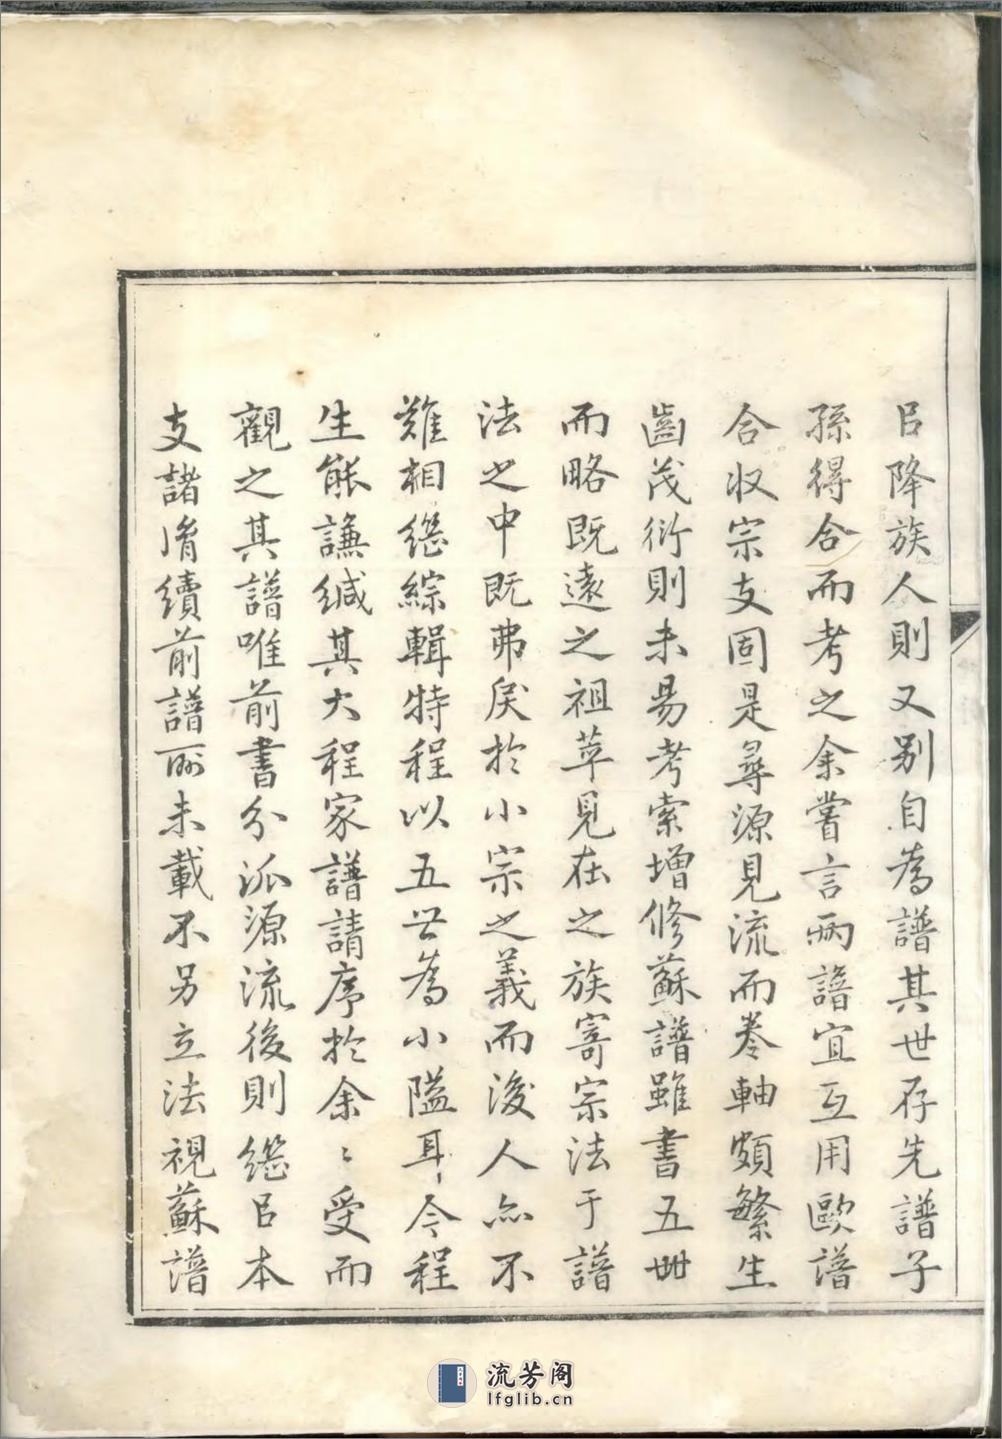 㠯降族人則又别自為譜其世存先譜子
孫得合而考之余嘗言兩譜宜互用歐譜
合收宗支固是尋源見流而卷軸頗繁生
齒茂衍則未易考索增修蘇譜雖書五世
而略既遠之祖萃見在之族寄宗法于譜
法之中既弗戾於小宗之義而後人亦不
難相繼綜輯特程以五世為小隘耳今程
生能謙緘其大程家譜請序於余〻受而
觀之其譜唯前書分派源流後則繼㠯本
支諸脩續前譜所未載不另立法視蘇譜
流芳阁
lfglib.cn